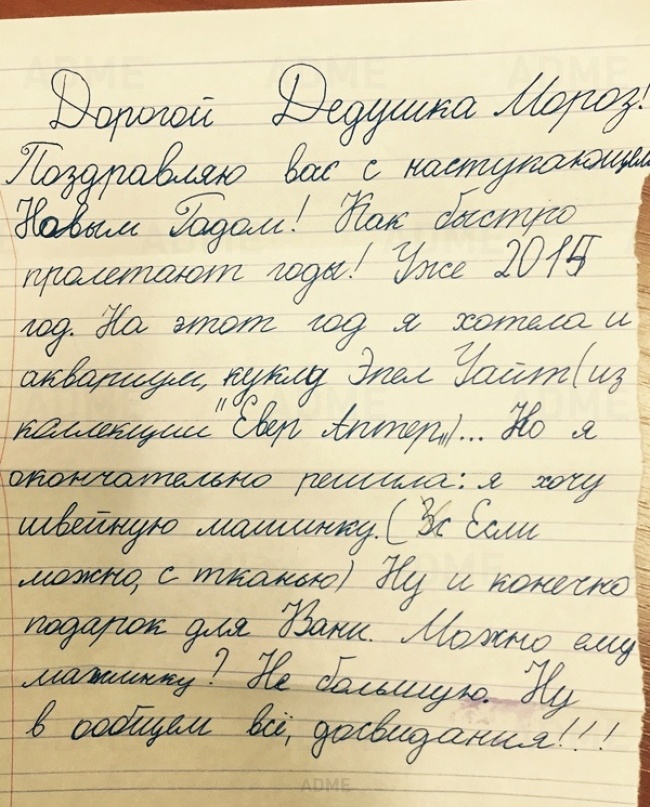 Дорогой Дедушка Мороз!
Поздравляю вас с наступающем
Новым Годом! Как быстро
пролетают годы! Уже 2015
год. На этот год я хотела и
аквариум, куклу Эпел Уайт (из
коллекции "Евер Аптер„)... Но я
окончательно решила: я хочу
швейную машинку. ( Если
можно, с тканью) Ну и конечно
подарок для Вани. Можно ему
машинку? Не большую. Ну
в ообщем всё, досвидания!!!
ADME